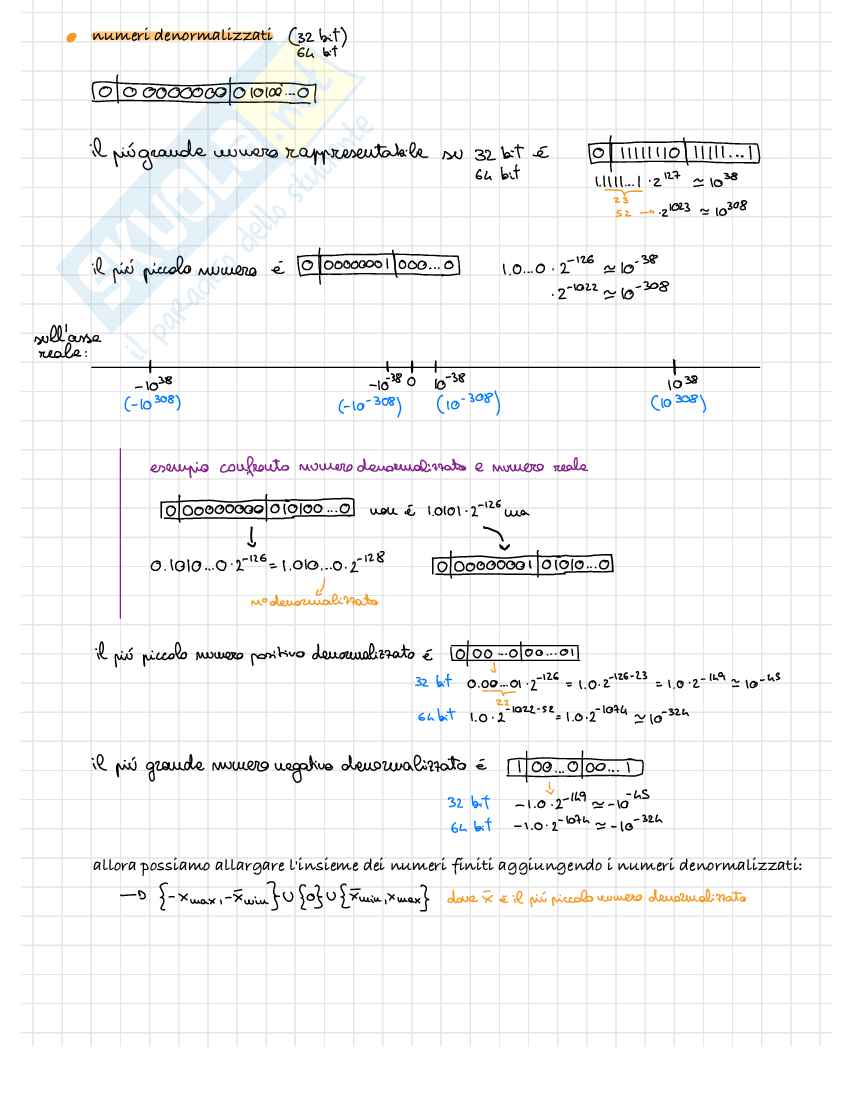 • numeri denormalizzati (32 bit)
64 bit
0 | 0 0000000 | 010100...0
il più grande numero rappresentabile su 32 bit è 0 | 11111110 | 11111...1
64 bit
1.1111...1 · 2^127 ≃ 10^38
23
52 → · 2^1023 ≃ 10^308
il più piccolo numero è 0 | 00000001 | 000...0 1.0...0 · 2^-126 ≃ 10^-38
· 2^-1022 ≃ 10^-308
sull'asse
reale:
-10^38 -10^-38 0 10^-38 10^38
(-10^308) (-10^-308) (10^-308) (10^308)
esempio confronto numero denormalizzato e numero reale
0 | 00000000 | 010100...0 non è 1.0101 · 2^-126 ma
0.1010...0 · 2^-126 = 1.010...0 · 2^-128 0 | 00000001 | 01010...0
n° denormalizzato
il più piccolo numero positivo denormalizzato è 0 | 00...0 | 00...01
32 bit 0.00...01 · 2^-126 = 1.0 · 2^-126-23 = 1.0 · 2^-149 ≃ 10^-45
23
64 bit 1.0 · 2^-1022-52 = 1.0 · 2^-1074 ≃ 10^-324
il più grande numero negativo denormalizzato è 1 | 00...0 | 00...1
32 bit -1.0 · 2^-149 ≃ -10^-45
64 bit -1.0 · 2^-1074 ≃ -10^-324
allora possiamo allargare l'insieme dei numeri finiti aggiungendo i numeri denormalizzati:
→ {-xmax, -x̄min} ∪ {0} ∪ {x̄min, xmax} dove x̄ è il più piccolo numero denormalizzato
SKUOLA.net
il paradiso dello studente